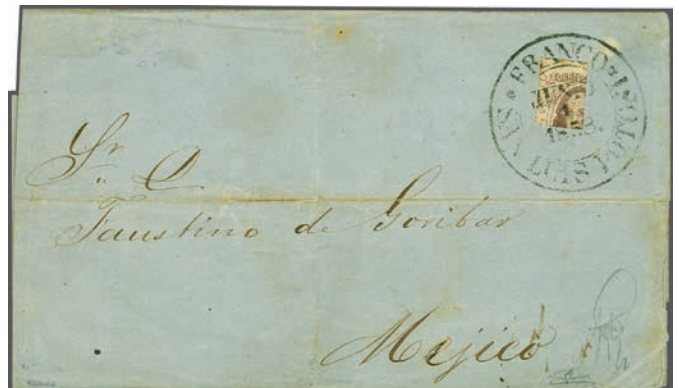 FRANCO
SAN LUIS POTOSI
Sr. D.
Faustino de Goribar
Mejico